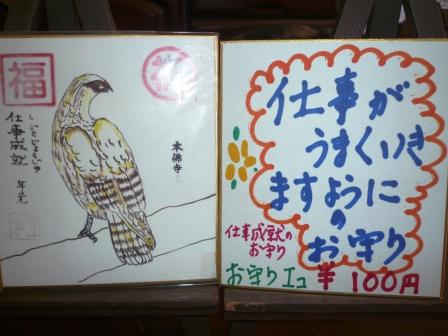 福
しごとじょうじゅ
仕事成就
年光
本佛寺
仕事が
うまくいき
ますように
の
お守り
仕事成就の
お守り
お守りエコ ¥100円